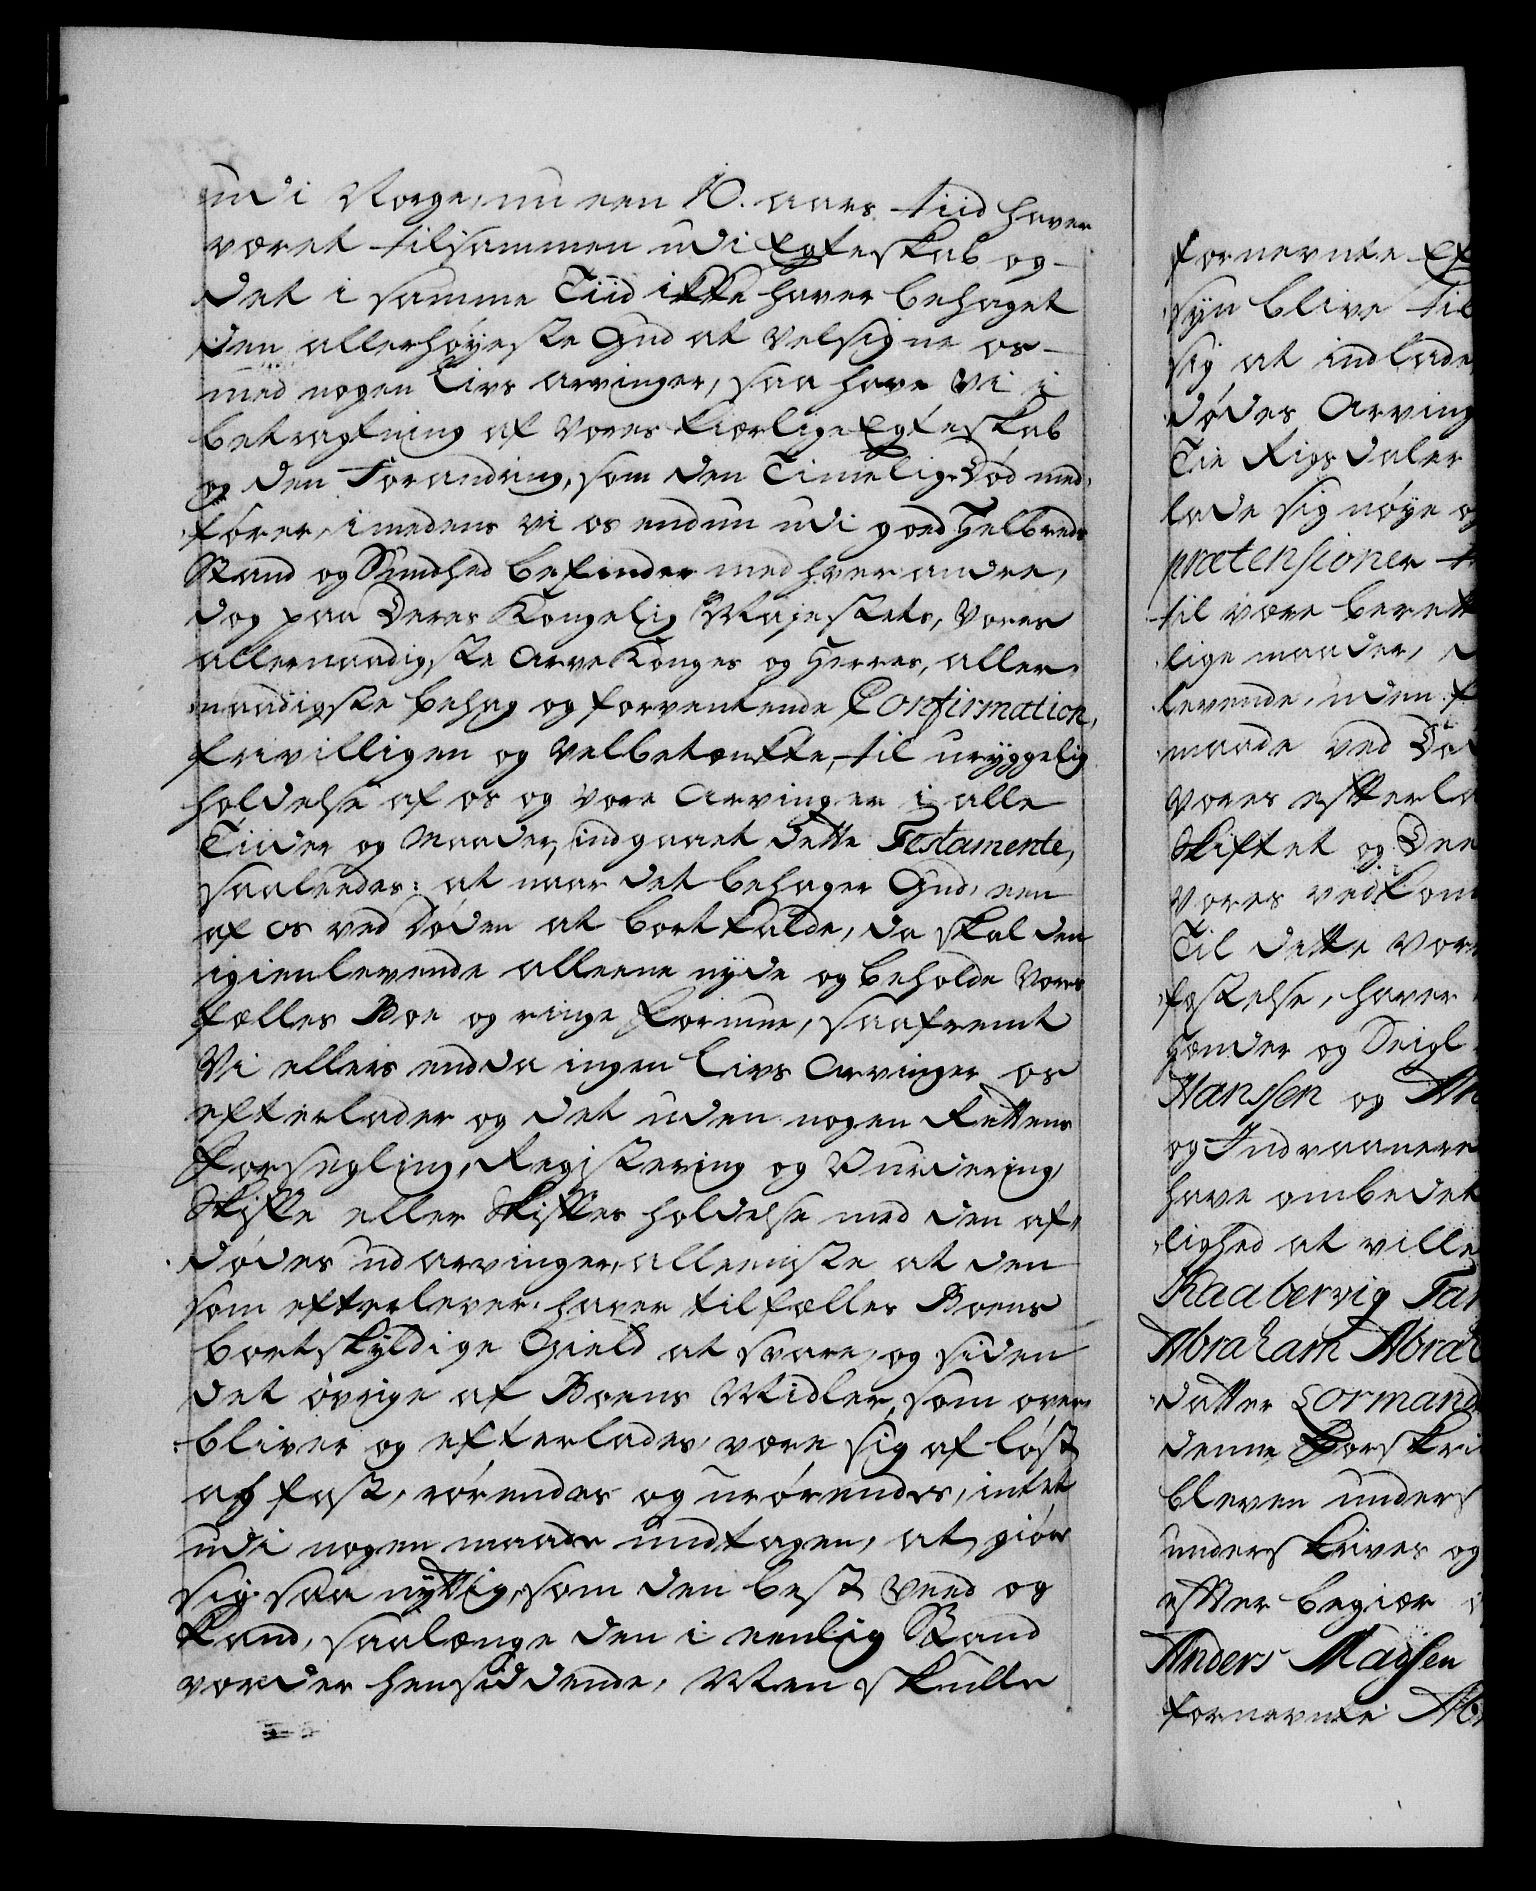 udi Norge, nu een 10. aars tiid haver
været tilsammen udi Egteskab og
det i samme Tiid ikke haver behaget
den allerhøyeste Gud at velsigne os
med nogen Livs arvinger, saa have Vi i
betragtning af vores kierlige Egteskab
og den Forandring, som den Timelig Død med-
fører, imedens vi os endnu udi goed Helbreds
Stand og Sundhed befinder med hver andre,
dog paa Deres Kongelig Majestets, vores
allernaadigste Arve Konges og Herres, aller-
naadigste behag og forventende Confirmation,
frivilligen og velbetænkte, til uryggelig
holdelse af os og vore Arvinger i alle
Tiider og Maader, indgaaet dette Testamente,
saaleedes: at naar det behager Gud, een
af os ved Døden at bortkalde, da skal den
igienlevende alleene nyde og beholde vores
fælles Boe og ringe Formue, saafremt
Vi ellers endda ingen Livs Arvinger os
efterlader og det uden nogen Rettens
Forsegling, Registering og Vurdering,
Skifte eller Skiftes holdelse med den af-
dødes udarvinger, alleeniste at den
som efterlever, haver til fælles Boens
bortskyldige Gield at svare, og siden
det øvrige af Boens Midler, som over-
bliver og efterlades, være sig af løst
og fast, rørendes og urørendes, intet
udi nogen maade undtagen, at giøre
sig saa nyttig, som den best veed og
kand, saalænge den i eenlig Stand
vorder hensiddende, Men skulle
fornevnte Ef
syn blive til
sig at indlade
dødes Arving
Tie Rigsdaler
lade sig nøye og
prætensioner
til være berett
lige maader,
levende, uden
maade ved Død
vores efterla
Skiftet og Dee
vores vedkom
Til dette vor
fæstelse, haver
Hænder og Seigl
Hanssen og An
og Indvaanere
have ombedet
lighed at ville
Kaabervig Tar
Abraham Abrah
datter Lormand
denne Forskri
bleven unders
underskrives og
efter begiær
Anders Madsen
fornevnte Ab